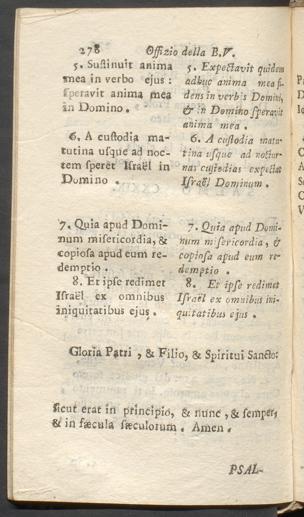 278 Offizio della B.V.
5. Sustinuit anima
mea in verbo ejus:
speravit anima mea
in Domino.
6. A custodia ma-
tutina usque ad noc-
tem speret Israël in
Domino.
7. Quia apud Domi-
num misericordia, &
copiosa apud eum re-
demptio.
8. Et ipse redimet
Israël ex omnibus
iniquitatibus ejus.
5. Expectavit quidem
adhuc anima mea fi-
dens in verbis Domini,
& in Domino speravit
anima mea.
6. A custodia matu-
tina usque ad noctur-
nas custodias expectat
Israël Dominum.
7. Quia apud Domi-
num misericordia, &
copiosa apud eum re-
demptio.
8. Et ipse redimet
Israël ex omnibus ini-
quitatibus ejus.
Gloria Patri, & Filio, & Spiritui Sancto:
sicut erat in principio, & nunc, & semper,
& in sæcula sæculorum. Amen.
PSAL-